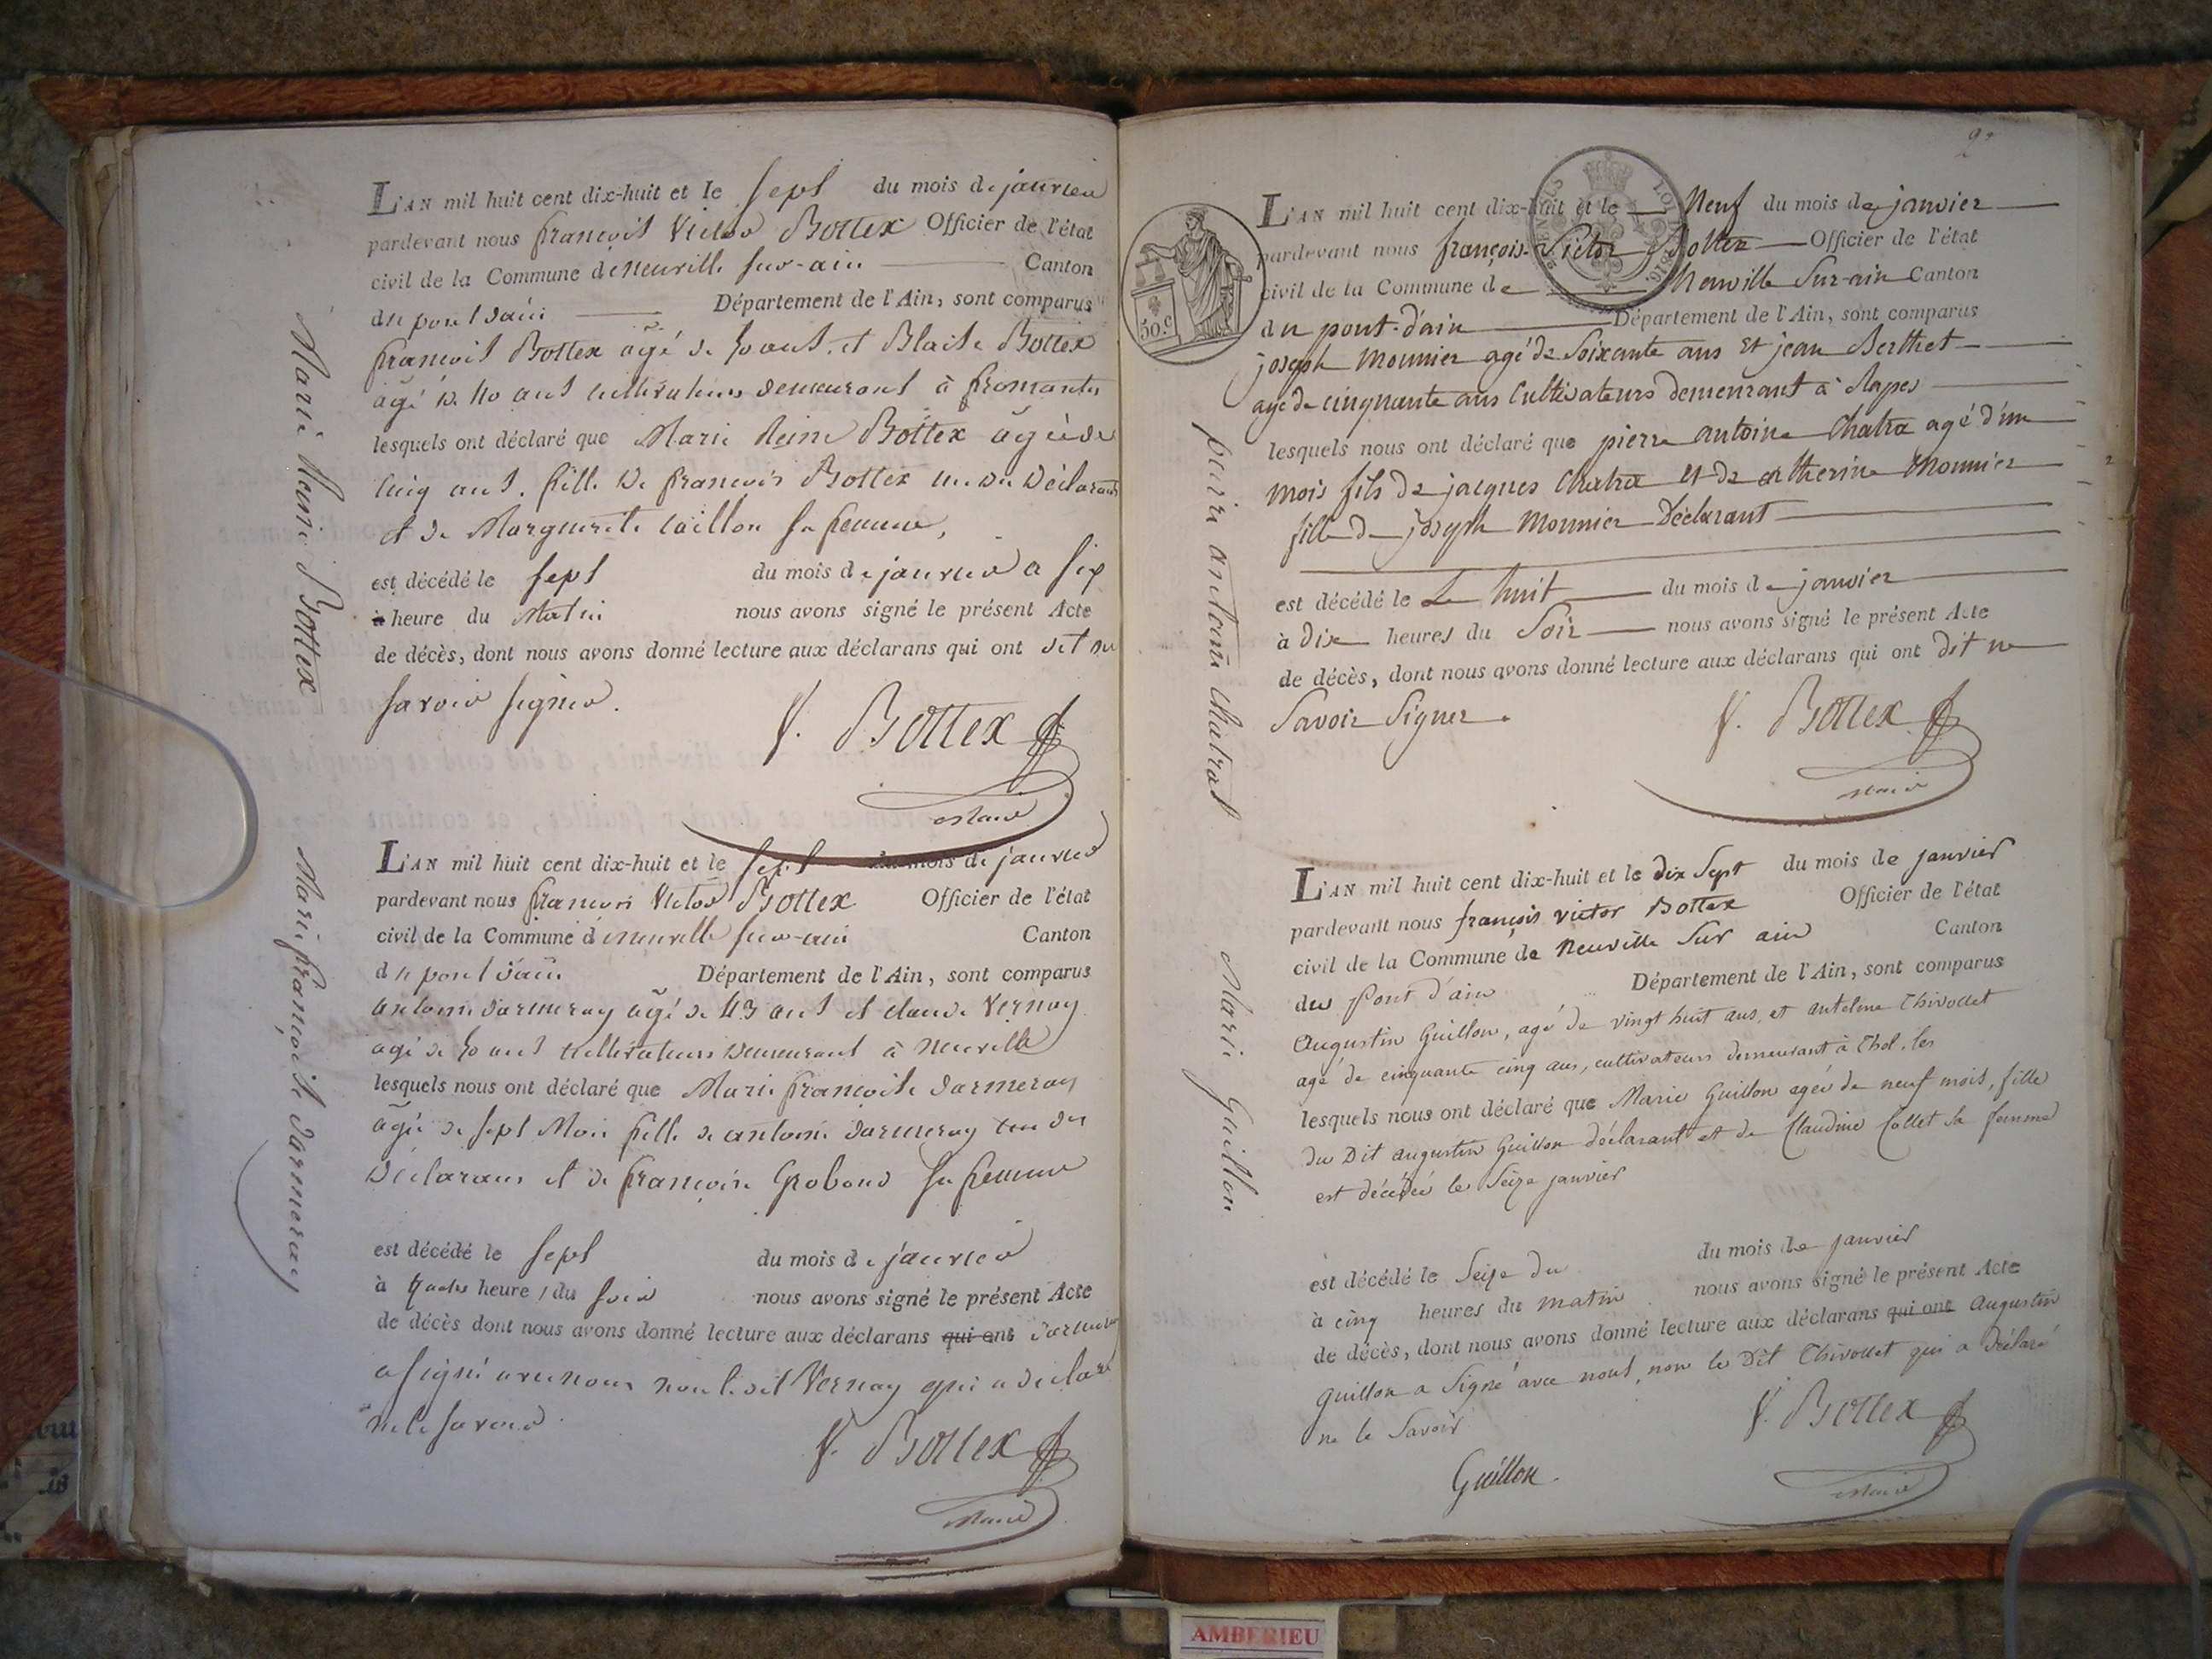 L'AN mil huit cent dix-huit et le sept du mois de janvier
pardevant nous françois Victor Bottex Officier de l'état
civil de la Commune de neuville sur-ain Canton
du pont d'ain Département de l'Ain, sont comparus
françois Bottex agé de 50 ans. et Blaise Bottex
agé de 40 ans cultivateurs demeurant à fromantes
lesquels ont déclaré que Marie Reine Bottex agée de
cinq ans. fille de françois Bottex un des déclarans
et de Marguerite caillon sa femme,
est décédé le sept du mois de janvier a six
à heure du Matin nous avons signé le présent Acte
de décès, dont nous avons donné lecture aux déclarans qui ont dit ne
savoir signer.
V. Bottex
Maire
Marie Reine Bottex
L'AN mil huit cent dix-huit et le sept du mois de janvier
pardevant nous françois Victor Bottex Officier de l'état
civil de la Commune de neuville sur-ain Canton
du pont d'ain Département de l'Ain, sont comparus
antoine darmeray agé de 43 ans et claude Vernay
agé de 50 ans cultivateurs demeurant à Neuville
lesquels nous ont déclaré que Marie françoise darmeray
agée de sept Mois fille de antoine darmeray un des
déclarans et de françoise Grobond sa femme
est décédé le sept du mois de janvier
à quatre heures du soir nous avons signé le présent Acte
de décès dont nous avons donné lecture aux déclarans qui ont darmeray
a signé avec nous non le dit Vernay qui a déclaré
ne le savoir.
V. Bottex
Maire
Marie françoise darmeray
2e
2 CENTIMES LOI DE 1816
50.c
L'AN mil huit cent dix-huit et le Neuf du mois de janvier
pardevant nous françois-Victor Bottex Officier de l'état
civil de la Commune de Neuville Sur-ain Canton
du pont-d'ain Département de l'Ain, sont comparus
joseph Monnier agé de Soixante ans et jean Berthet
agé de cinquante ans Cultivateurs demeurant à Rapes
lesquels nous ont déclaré que pierre antoine Chatra agé d'un
mois fils de jacques Chatra et de catherine Monnier
fille de joseph Monnier Déclarant
est décédé le Le huit du mois de janvier
à Dix heures du Soir nous avons signé le présent Acte
de décès, dont nous avons donné lecture aux déclarans qui ont dit ne
Savoir Signer.
V. Bottex
Maire
peirre antoine chatrat
L'AN mil huit cent dix-huit et le dix Sept du mois de janvier
pardevant nous françois victor Bottex Officier de l'état
civil de la Commune de Neuville Sur ain Canton
du Pont d'ain Département de l'Ain, sont comparus
Augustin Guillon, agé de vingt huit ans, et antelme Thivollet
agé de cinquante cinq ans, cultivateurs demeurant à Thol. les
lesquels nous ont déclaré que Marie Guillon agée de neuf mois, fille
du Dit augustin Guillon déclarant et de Claudine Collet sa femme
est décédée le Seize janvier
est décédé le Seize du du mois de janvier
à cinq heures du matin nous avons signé le présent Acte
de décès, dont nous avons donné lecture aux déclarans qui ont Augustin
Guillon a Signé avec nous, non le Dit Thivollet qui a déclaré
ne le Savoir
V. Bottex
Maire
Guillon.
Marie Guillon
AMBERIEU